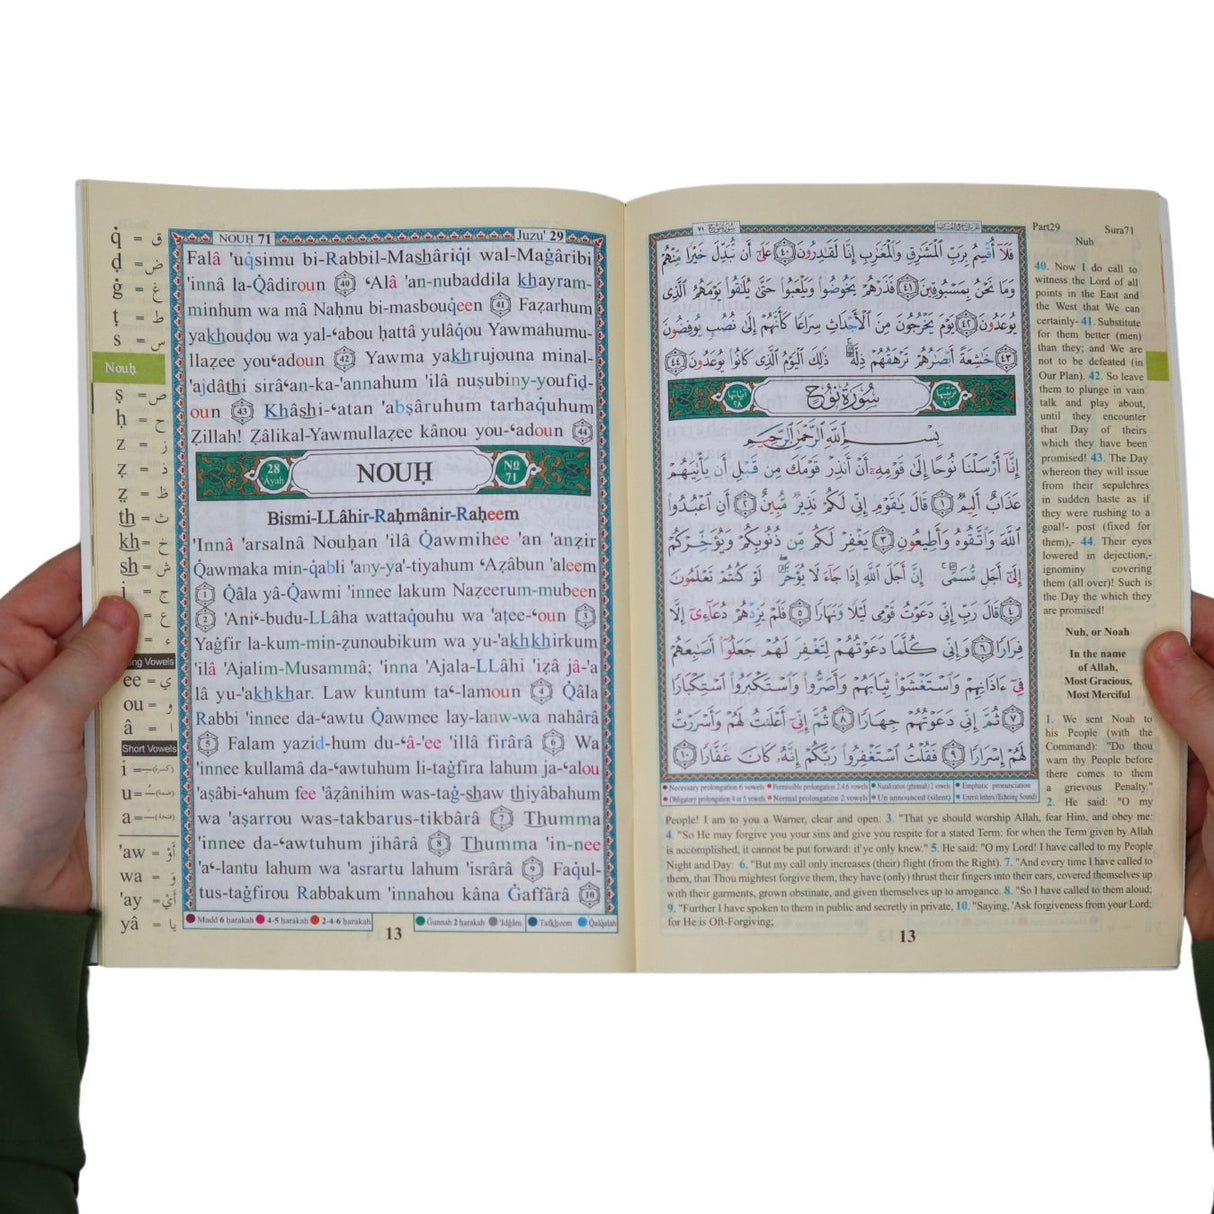 q̇ = ق
ḍ = ض
ġ = غ
ṭ = ط
s = س
Nouḥ
ṣ = ص
ḥ = ح
z = ز
ẓ = ذ
ẓ = ظ
th = ث
kh = خ
sh = ش
j = ج
ع
ء
Vowels
ee = ي
ou = و
â = ا
Short Vowels
i =
u=
a =
'aw = أَوْ
wa = وَ
'ay = أَيْ
yâ = يا
NOUH 71 Juzu' 29
Falâ 'uq̇simu bi-Rabbil-Mashâriqi wal-Maġâribi
'innâ la-Q̇âdiroun 40 ‘Alâ 'an-nubaddila khayram-
minhum wa mâ Naḥnu bi-masbouq̇een 41 Faẓarhum
yakhouḍou wa yal-‘abou ḥattâ yulâq̇ou Yawmahumu-
llaẓee you‘adoun 42 Yawma yakhrujouna minal-
'ajdâthi sirâ‘an-ka-'annahum 'ilâ nuṣubiny-youfiḍ-
oun 43 Khâshi-‘atan 'abṣâruhum tarhaq̇uhum
Ẓillah! Ẓâlikal-Yawmullaẓee kânou you-‘adoun 44
28 'Âyah NOUḤ NΩ 71
Bismi-LLâhir-Raḥmânir-Raḥeem
'Innâ 'arsalnâ Nouḥan 'ilâ Q̇awmihee 'an 'anẓir
Q̇awmaka min-q̇abli 'any-ya'-tiyahum ‘Aẓâbun 'aleem
1 Q̇âla yâ-Q̇awmi 'innee lakum Naẓeerum-mubeen
2 'Ani‘-budu-LLâha wattaq̇ouhu wa 'aṭee-‘oun 3
Yaġfir la-kum-min-ẓunoubikum wa yu-'akhkhirkum
'ilâ 'Ajalim-Musammâ; 'inna 'Ajala-LLâhi 'iẓâ jâ-'a
lâ yu-'akhkhar. Law kuntum ta‘-lamoun 4 Q̇âla
Rabbi 'innee da-‘awtu Q̇awmee lay-lanw-wa nahârâ
5 Falam yazid-hum du-‘â-'ee 'illâ firârâ 6 Wa
'innee kullamâ da-‘awtuhum li-taġfira lahum ja-‘alou
'aṣâbi-‘ahum fee 'âẓânihim was-taġ-shaw thiyâbahum
wa 'aṣarrou was-takbarus-tikbârâ 7 Thumma
'innee da-‘awtuhum jihârâ 8 Thumma 'in-nee
'a‘-lantu lahum wa 'asrartu lahum 'isrârâ 9 Faq̇ul-
tus-taġfirou Rabbakum 'innahou kâna Ġaffârâ 10
Madd 6 ḥarakah 4-5 ḥarakah 2-4-6 ḥarakah Ġunnah 2 ḥarakah 'Idġâm Tafkheem Qalqalah
13
Part29 Sura71
Nuh
فَلَآ أُقْسِمُ بِرَبِّ ٱلْمَشَٰرِقِ وَٱلْمَغَٰرِبِ إِنَّا لَقَٰدِرُونَ ٤٠ عَلَىٰٓ أَن نُّبَدِّلَ خَيْرًا مِّنْهُمْ
وَمَا نَحْنُ بِمَسْبُوقِينَ ٤١ فَذَرْهُمْ يَخُوضُوا۟ وَيَلْعَبُوا۟ حَتَّىٰ يُلَٰقُوا۟ يَوْمَهُمُ ٱلَّذِى
يُوعَدُونَ ٤٢ يَوْمَ يَخْرُجُونَ مِنَ ٱلْأَجْدَاثِ سِرَاعًا كَأَنَّهُمْ إِلَىٰ نُصُبٍ يُوفِضُونَ
٤٣ خَٰشِعَةً أَبْصَٰرُهُمْ تَرْهَقُهُمْ ذِلَّةٌ ۚ ذَٰلِكَ ٱلْيَوْمُ ٱلَّذِى كَانُوا۟ يُوعَدُونَ ٤٤
ترتيبها ٧١ سُورَةُ نُوحٍ آياتها ٢٨
بِسْمِ ٱللَّهِ ٱلرَّحْمَٰنِ ٱلرَّحِيمِ
إِنَّآ أَرْسَلْنَا نُوحًا إِلَىٰ قَوْمِهِۦٓ أَنْ أَنذِرْ قَوْمَكَ مِن قَبْلِ أَن يَأْتِيَهُمْ
عَذَابٌ أَلِيمٌ ١ قَالَ يَٰقَوْمِ إِنِّى لَكُمْ نَذِيرٌ مُّبِينٌ ٢ أَنِ ٱعْبُدُوا۟
ٱللَّهَ وَٱتَّقُوهُ وَأَطِيعُونِ ٣ يَغْفِرْ لَكُم مِّن ذُنُوبِكُمْ وَيُؤَخِّرْكُمْ
إِلَىٰٓ أَجَلٍ مُّسَمًّى ۚ إِنَّ أَجَلَ ٱللَّهِ إِذَا جَآءَ لَا يُؤَخَّرُ ۖ لَوْ كُنتُمْ تَعْلَمُونَ
٤ قَالَ رَبِّ إِنِّى دَعَوْتُ قَوْمِى لَيْلًا وَنَهَارًا ٥ فَلَمْ يَزِدْهُمْ دُعَآءِىٓ إِلَّا
فِرَارًا ٦ وَإِنِّى كُلَّمَا دَعَوْتُهُمْ لِتَغْفِرَ لَهُمْ جَعَلُوٓا۟ أَصَٰبِعَهُمْ
فِىٓ ءَاذَانِهِمْ وَٱسْتَغْشَوْا۟ ثِيَابَهُمْ وَأَصَرُّوا۟ وَٱسْتَكْبَرُوا۟ ٱسْتِكْبَارًا
٧ ثُمَّ إِنِّى دَعَوْتُهُمْ جِهَارًا ٨ ثُمَّ إِنِّىٓ أَعْلَنتُ لَهُمْ وَأَسْرَرْتُ
لَهُمْ إِسْرَارًا ٩ فَقُلْتُ ٱسْتَغْفِرُوا۟ رَبَّكُمْ إِنَّهُۥ كَانَ غَفَّارًا ١٠
Necessary prolongation 6 vowels Permissible prolongation 2,4,6 vowels Nazalization (ghunnah) 2 vowels Emphatic pronunciation
Obligatory prolongation 4 or 5 vowels Normal prolongation 2 vowels Un announced (silent) Unrest letters (Echoing Sound)
40. Now I do call to
witness the Lord of all
points in the East and
the West that We can
certainly- 41. Substitute
for them better (men)
than they; and We are
not to be defeated (in
Our Plan). 42. So leave
them to plunge in vain
talk and play about,
until they encounter
that Day of theirs
which they have been
promised! 43. The Day
whereon they will issue
from their sepulchres
in sudden haste as if
they were rushing to a
goal!- post (fixed for
them),- 44. Their eyes
lowered in dejection,-
ignominy covering
them (all over)! Such is
the Day the which they
are promised!
Nuh, or Noah
In the name
of Allah,
Most Gracious,
Most Merciful
1. We sent Noah to
his People (with the
Command): "Do thou
warn thy People before
there comes to them
a grievous Penalty."
2. He said: "O my
People! I am to you a Warner, clear and open: 3. "That ye should worship Allah, fear Him, and obey me:
4. "So He may forgive you your sins and give you respite for a stated Term: for when the Term given by Allah
is accomplished, it cannot be put forward: if ye only knew." 5. He said: "O my Lord! I have called to my People
Night and Day: 6. "But my call only increases (their) flight (from the Right). 7. "And every time I have called to
them, that Thou mightest forgive them, they have (only) thrust their fingers into their ears, covered themselves up
with their garments, grown obstinate, and given themselves up to arrogance. 8. "So I have called to them aloud;
9. "Further I have spoken to them in public and secretly in private, 10. "Saying, 'Ask forgiveness from your Lord;
for He is Oft-Forgiving;
13